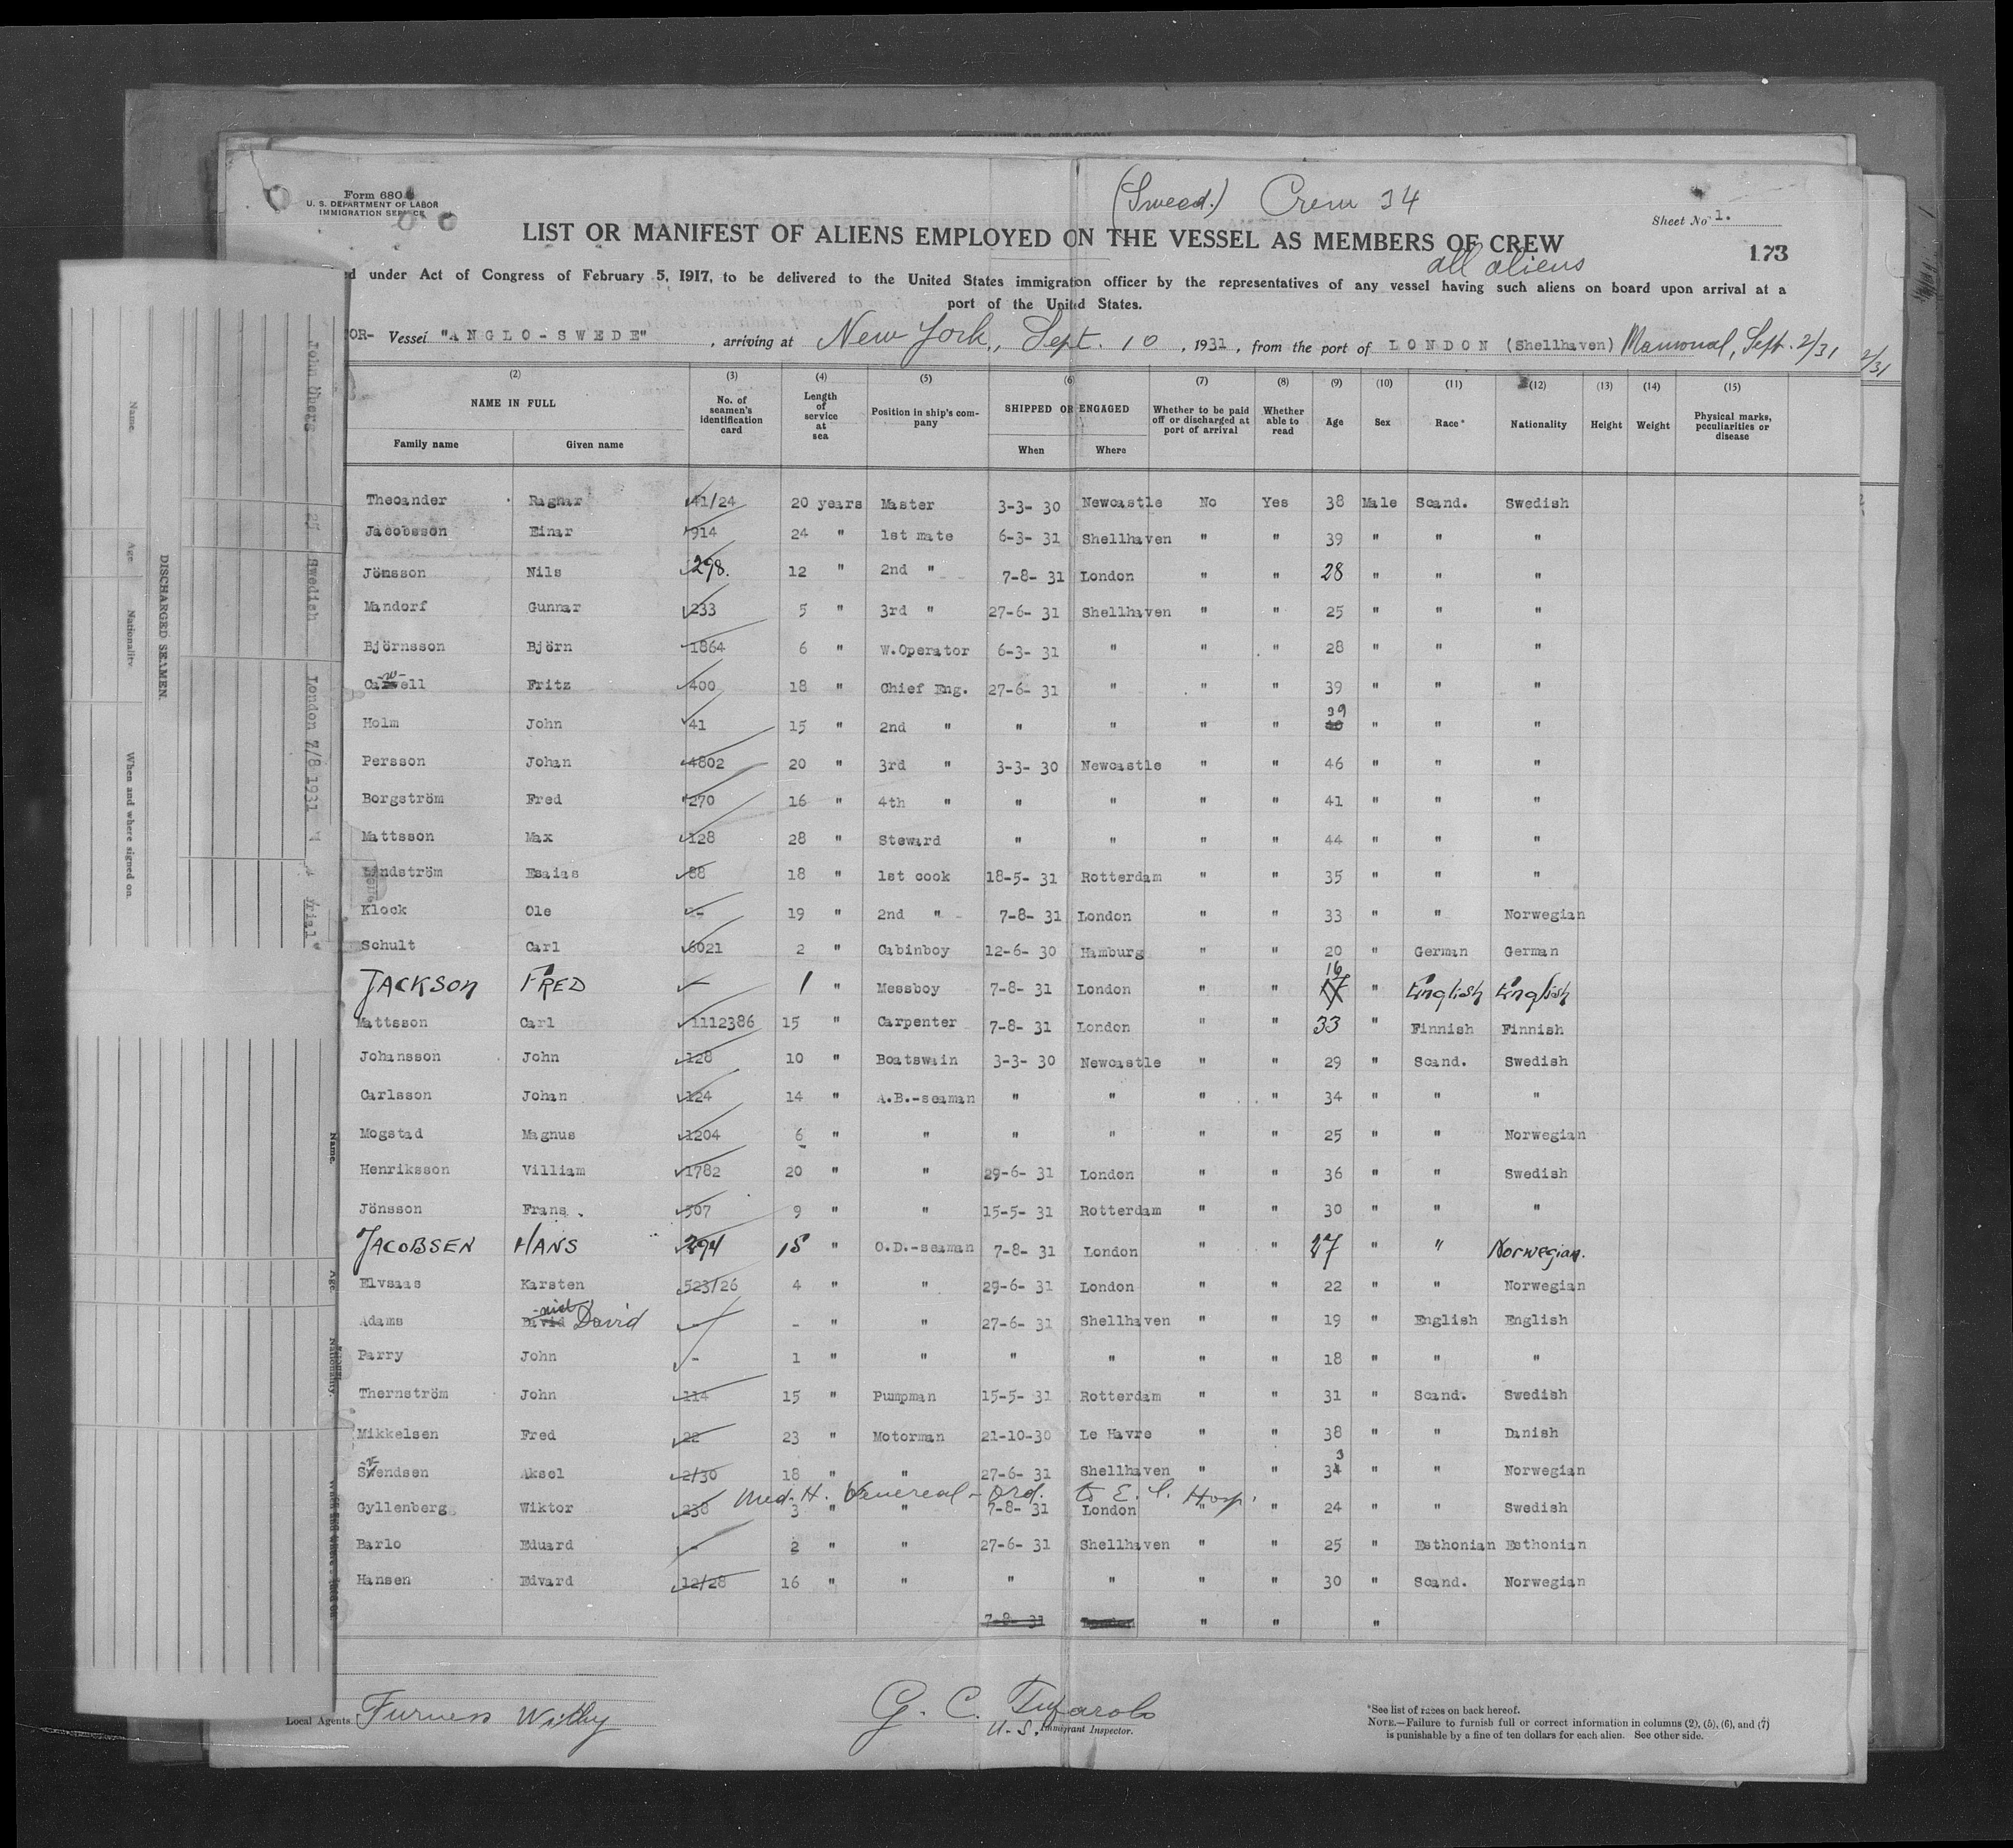 (Sweed.) Crew 34
Form 680
U. S. DEPARTMENT OF LABOR
IMMIGRATION SERVICE
Sheet No 1.
LIST OR MANIFEST OF ALIENS EMPLOYED ON THE VESSEL AS MEMBERS OF CREW
all aliens
173
under Act of Congress of February 5, 1917, to be delivered to the United States immigration officer by the representatives of any vessel having such aliens on board upon arrival at a
port of the United States.
OR- Vessel "ANGLO-SWEDE", arriving at New York, Sept. 10, 1931, from the port of LONDON (Shellhaven) Mamonal, Sept. 2/31
2/31
(2) (3) (4) (5) (6) (7) (8) (9) (10) (11) (12) (13) (14) (15)
NAME IN FULL
Family name Given name
No. of seamen's identification card
Length of service at sea
Position in ship's company
SHIPPED OR ENGAGED
When Where
Whether to be paid off or discharged at port of arrival
Whether able to read
Age Sex Race* Nationality Height Weight
Physical marks, peculiarities or disease
Theoander Ragnar 41/24 20 years Master 3-3- 30 Newcastle No Yes 38 Male Scand. Swedish
Jacobsson Einar 914 24 " 1st mate 6-3- 31 Shellhaven " " 39 " " "
Jönsson Nils 298. 12 " 2nd " 7-8- 31 London " " 28 " " "
Mandorf Gunnar 233 5 " 3rd " 27-6- 31 Shellhaven " " 25 " " "
Björnsson Björn 1864 6 " W.Operator 6-3- 31 " " " 28 " " "
Cawell Fritz 400 18 " Chief Eng. 27-6- 31 " " " 39 " " "
Holm John 41 15 " 2nd " " " " " 39 " " "
Persson Johan 4802 20 " 3rd " 3-3- 30 Newcastle " " 46 " " "
Borgström Fred 270 16 " 4th " " " " 41 " " "
Mattsson Max 128 28 " Steward " " " " 44 " " "
Lindström Esaias 88 18 " 1st cook 18-5- 31 Rotterdam " " 35 " " "
Klock Ole -- 19 " 2nd " 7-8- 31 London " " 33 " " Norwegian
Schult Carl 6021 2 " Cabinboy 12-6- 30 Hamburg " " 20 " German German
JACKSON FRED 1 " Messboy 7-8- 31 London " " 16 17 " English English
Mattsson Carl 1112386 15 " Carpenter 7-8- 31 London " " 33 " Finnish Finnish
Johansson John 128 10 " Boatswain 3-3- 30 Newcastle " " 29 " Scand. Swedish
Carlsson Johan 124 14 " A.B.-seaman " " " " 34 " " "
Mogstad Magnus 1204 6 " " " " " " 25 " " Norwegian
Henriksson Villiam 1782 20 " " 29-6- 31 London " " 36 " " Swedish
Jönsson Frans 507 9 " " 15-5- 31 Rotterdam " " 30 " " "
JACOBSEN HANS 294 15 " O.D.-seaman 7-8- 31 London " " 27 " " Norwegian.
Elvsaas Karsten 523/26 4 " " 29-6- 31 London " " 22 " " Norwegian
Adams David David - - " " 27-6- 31 Shellhaven " " 19 " English English
Parry John - 1 " " " " " " 18 " " "
Thernström John 114 15 " Pumpman 15-5- 31 Rotterdam " " 31 " Scand. Swedish
Mikkelsen Fred 22 23 " Motorman 21-10-30 Le Havre " " 38 " " Danish
Svendsen Aksel 2/30 18 " " 27-6- 31 Shellhaven " " 34 3 " " Norwegian
Med. H. Venereal - Ord. to E. I. Hosp.
Gyllenberg Wiktor 238 3 " " 7-8- 31 London " " 24 " " Swedish
Barlo Eduard - 2 " " 27-6- 31 Shellhaven " " 25 " Esthonian Esthonian
Hansen Edvard 12/28 16 " " " " " " 30 " Scand. Norwegian
7-8- 31 London " " "
Local Agents Furness Withy
G. C. Tufarolo
U. S. Immigrant Inspector.
*See list of races on back hereof.
NOTE.—Failure to furnish full or correct information in columns (2), (5), (6), and (7)
is punishable by a fine of ten dollars for each alien. See other side.
DISCHARGED SEAMEN.
Name. Age Nationality When and where signed on
John 25 Swedish London 7/8 1931
Name. Age Nationality.